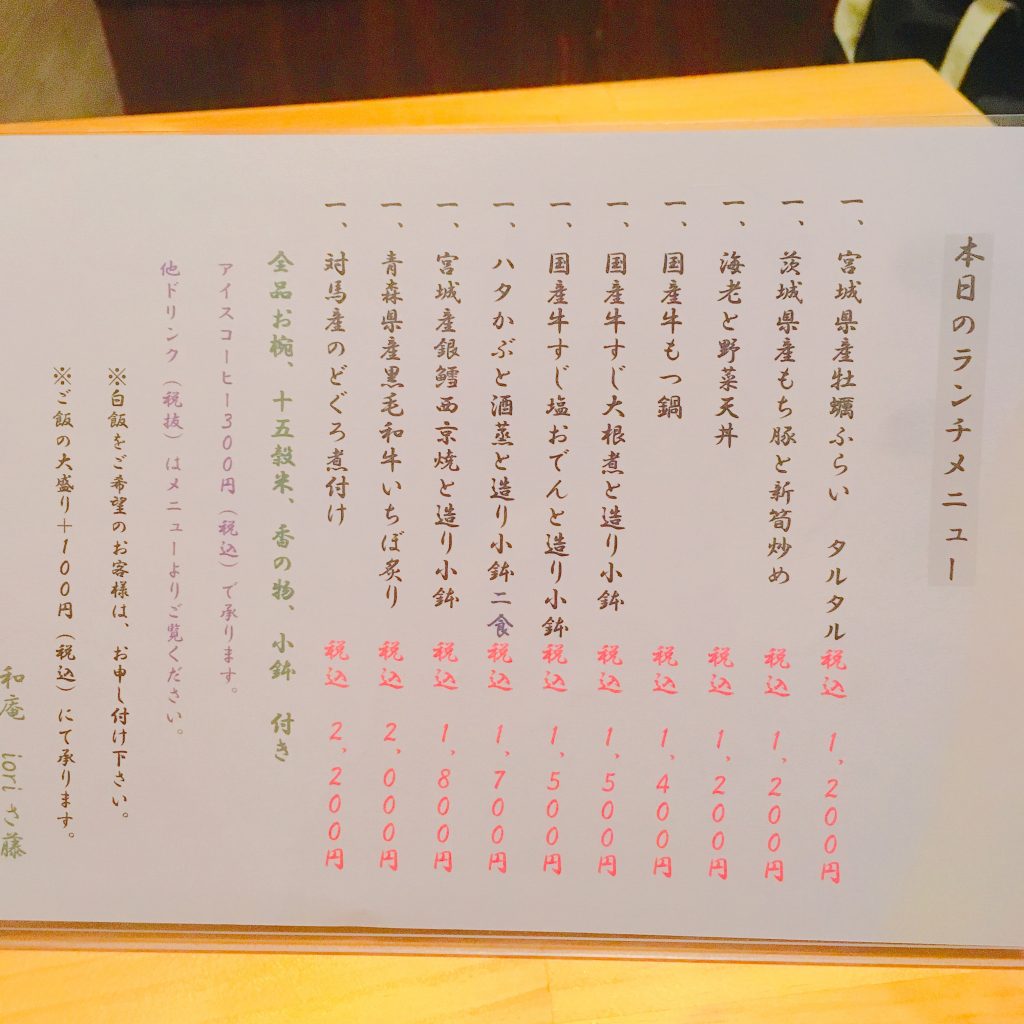 本日のランチメニュー
一、宮城県産牡蠣ふらい タルタル 税込 1,200円
一、茨城県産もち豚と新筍炒め 税込 1,200円
一、海老と野菜天丼 税込 1,200円
一、国産牛もつ鍋 税込 1,400円
一、国産牛すじ大根煮と造り小鉢 税込 1,500円
一、国産牛すじ塩おでんと造り小鉢 税込 1,500円
一、ハタかぶと酒蒸と造り小鉢 二食 税込 1,700円
一、宮城産銀鱈西京焼と造り小鉢 税込 1,800円
一、青森県産黒毛和牛いちぼ炙り 税込 2,000円
一、対馬産のどぐろ煮付け 税込 2,200円
全品お椀、十五穀米、香の物、小鉢 付き
アイスコーヒー300円(税込)で承ります。
他ドリンク(税抜)はメニューよりご覧ください。
※白飯をご希望のお客様は、お申し付け下さい。
※ご飯の大盛り+100円(税込)にて承ります。
和庵 iori さ藤